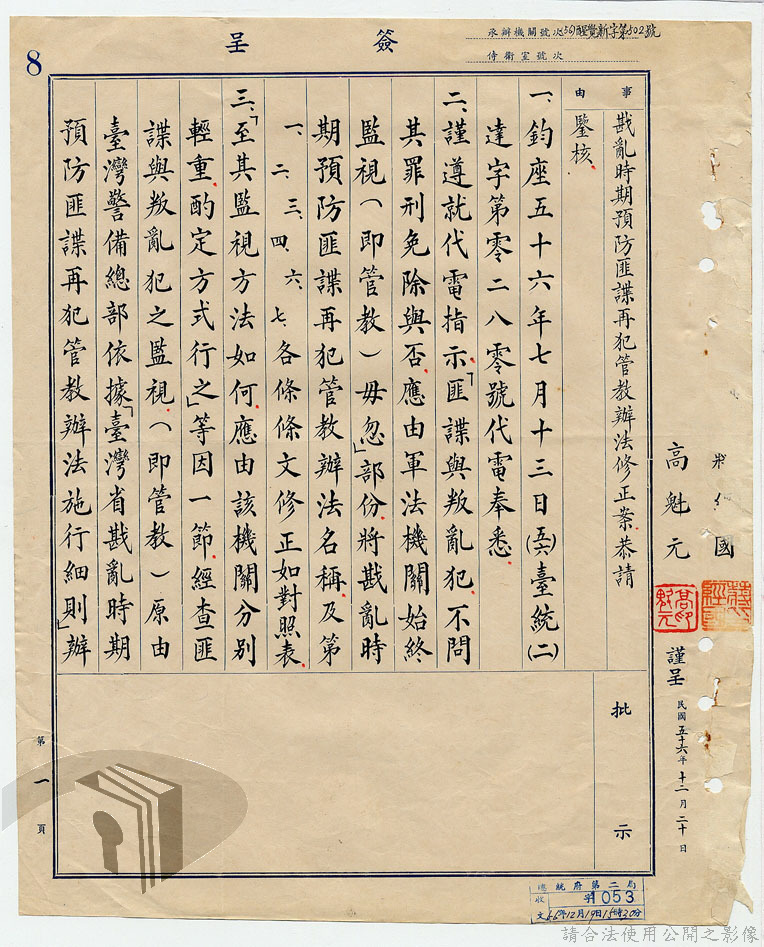 簽呈
承辦機關號次56醒覺新字第502號
侍衛室號次
8
事由
戡亂時期預防匪諜再犯管教辦法修正案恭請
鑒核
一、鈞座五十六年七月十三日(五六)臺統(二)
達字第零二八零號代電奉悉
二、謹遵就代電指示「匪諜與叛亂犯不問
其罪刑免除與否應由軍法機關始終
監視(即管教)毋忽」部份將戡亂時
期預防匪諜再犯管教辦法名稱及第
一、二、三、四、六、七、各條條文修正如對照表
三、「至其監視方法如何應由該機關分別
輕重酌定方式行之」等因一節經查匪
諜與叛亂犯之監視(即管教)原由
臺灣警備總部依據「臺灣省戡亂時期
預防匪諜再犯管教辦法施行細則」辦
批示
國
高魁元
蔣經國
高魁元印
謹呈
民國五十六年十二月二十日
第一頁
總統府第二局
收 053
文56年12月19日15時30分
請合法使用公開之影像